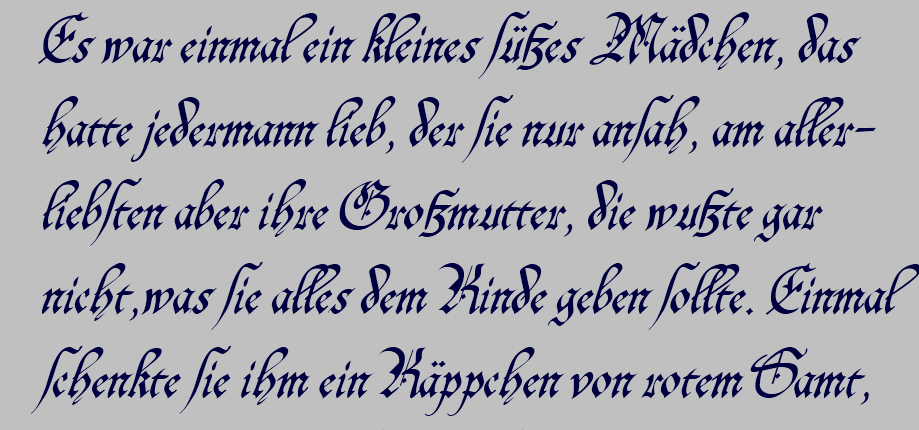 Es war einmal ein kleines ſüßes Mädchen, das
hatte jedermann lieb, der ſie nur anſah, am aller-
liebſten aber ihre Großmutter, die wußte gar
nicht,was ſie alles dem Kinde geben ſollte. Einmal
ſchenkte ſie ihm ein Käppchen von rotem Samt,